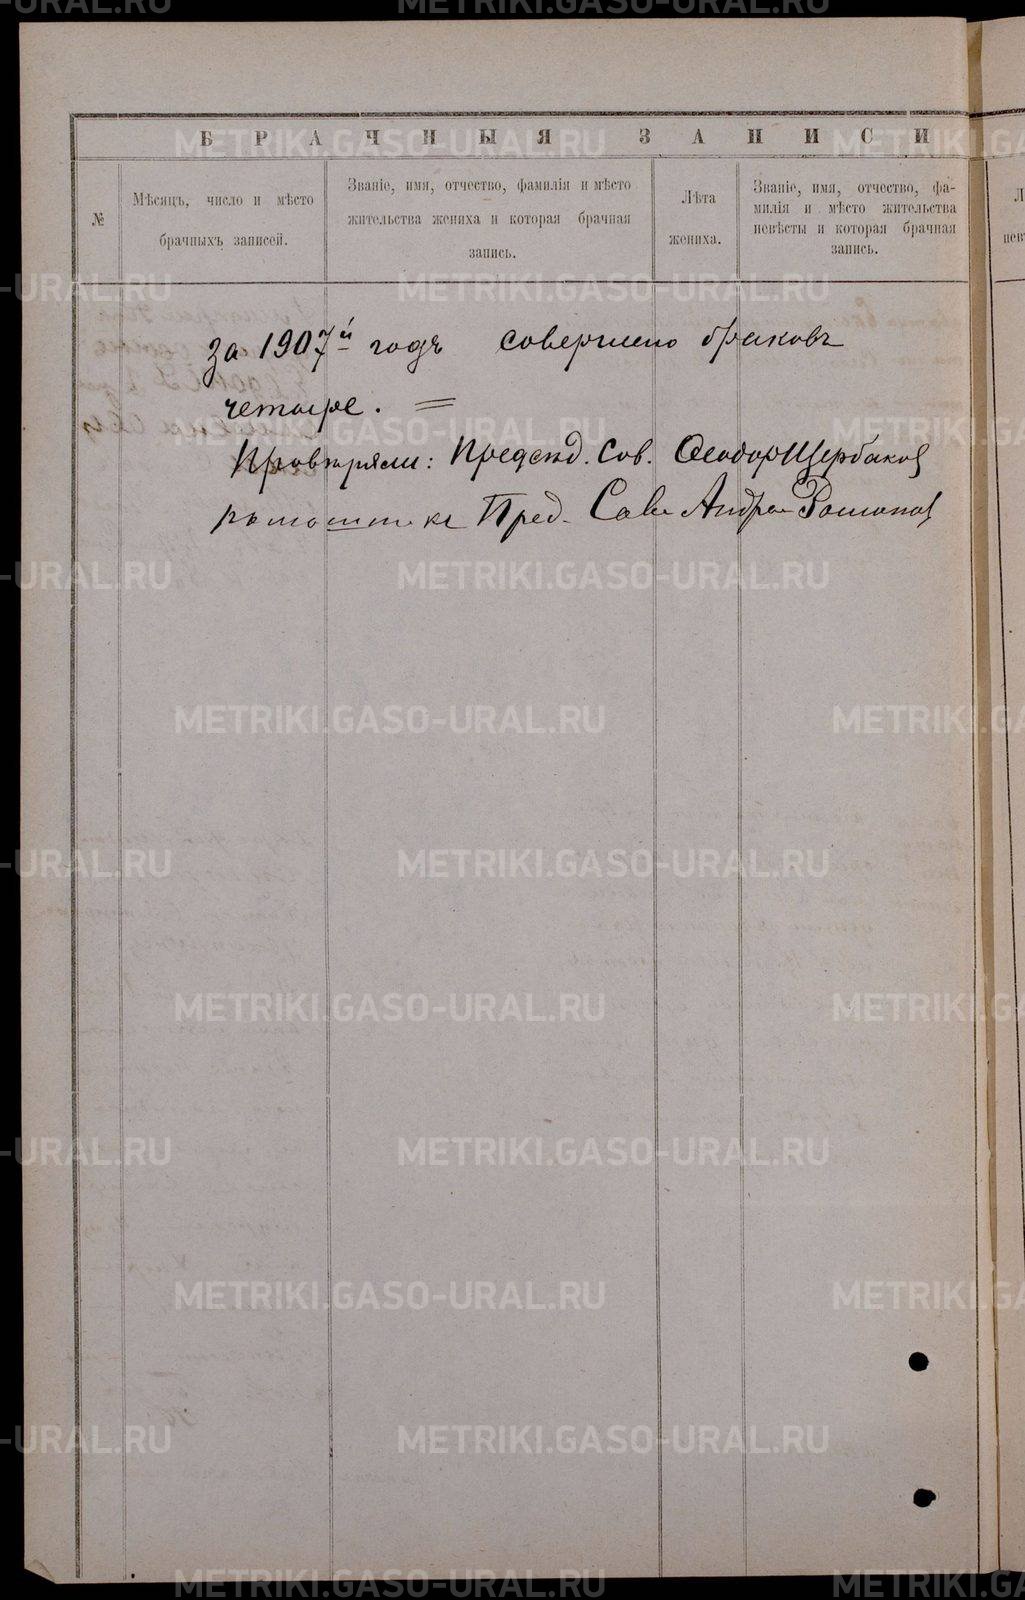 БРАЧНЫЯ ЗАПИСИ
№
Мѣсяцъ, число и мѣсто
брачныхъ записей.
Званіе, имя, отчество, фамилія и мѣсто
жительства жениха и которая брачная
запись.
Лѣта
жениха.
Званіе, имя, отчество, фа-
милія и мѣсто жительства
невѣсты и которая брачная
запись.
За 1907й годъ совершено браковъ
четыре.
Провѣряли: Предсѣд. Сов. Феодор Щербаков
Пред. Сов. Андре Романов
METRIKI.GASO-URAL.RU